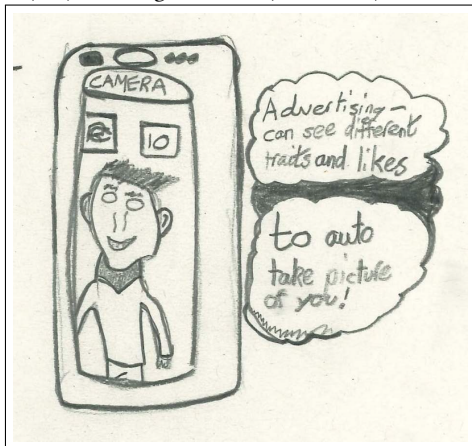 CAMERA
10
Advertising –
can see different
traits and likes
to auto
take picture
of you!